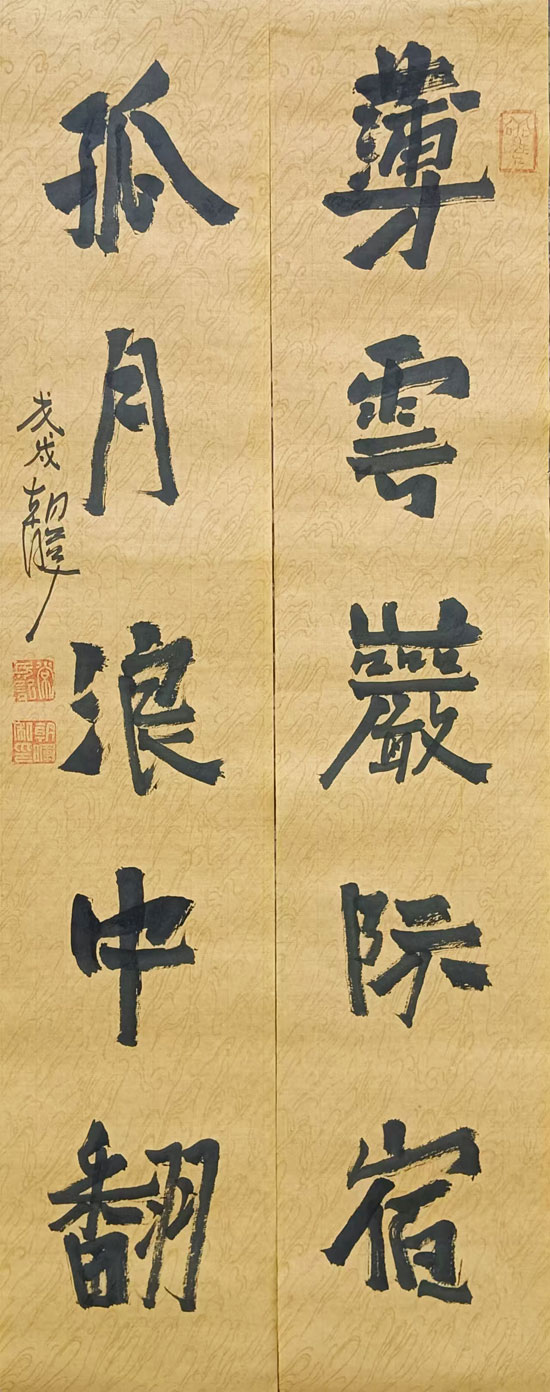 薄雲巖际宿
孤月浪中翻
戊戌